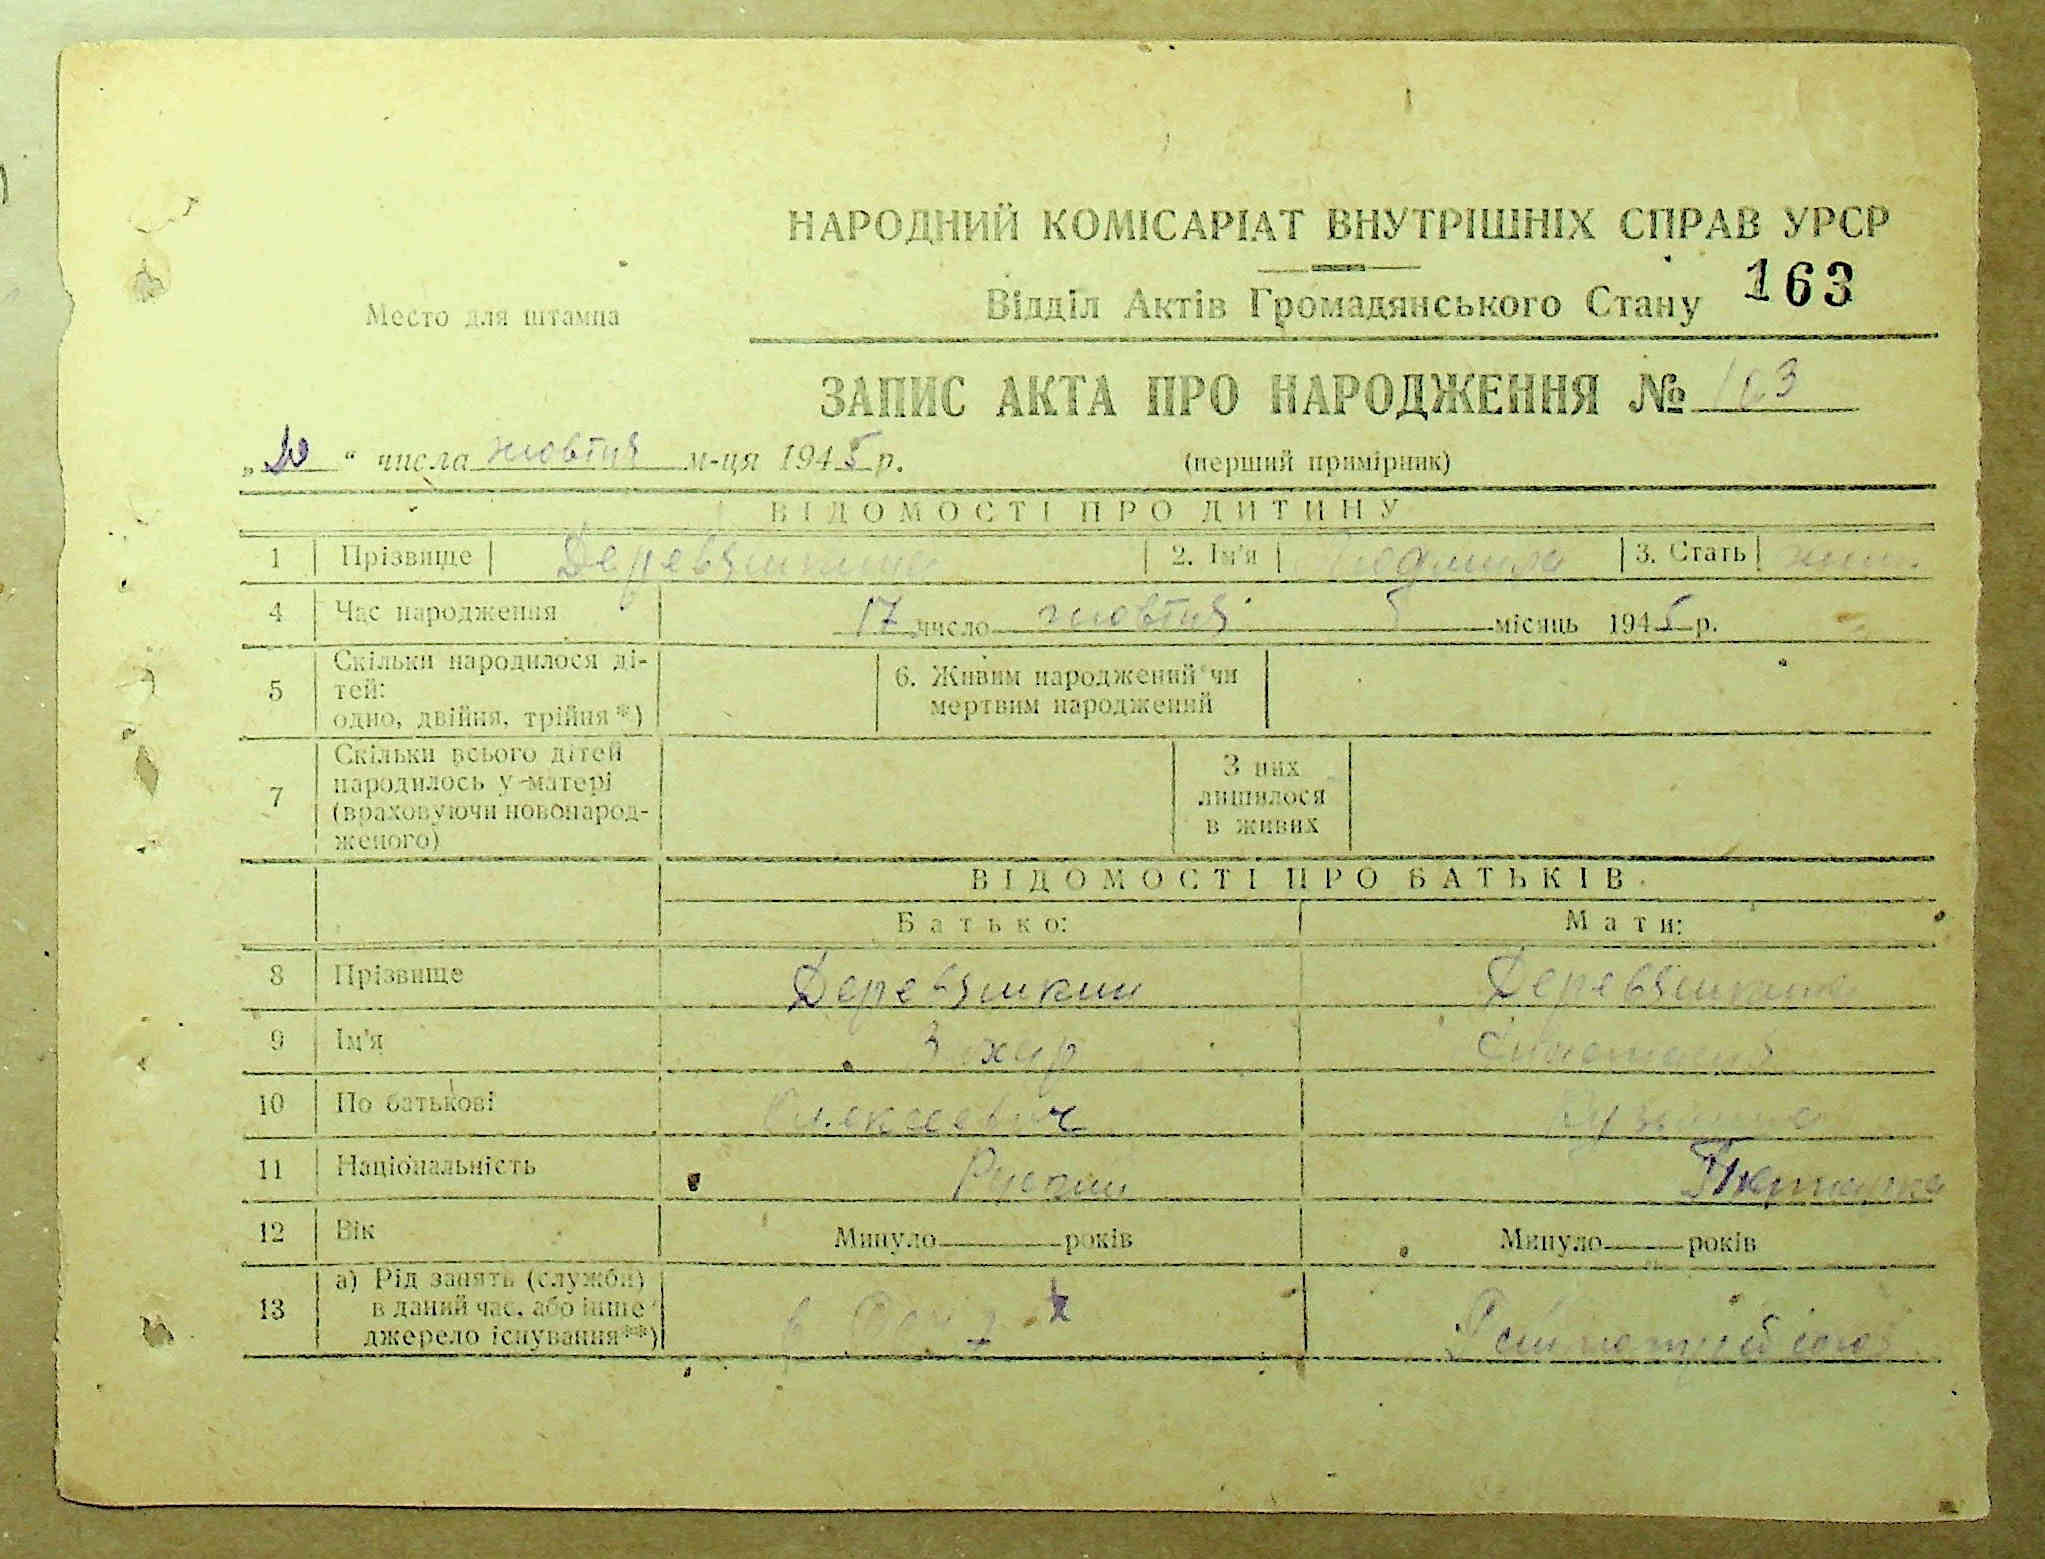 НАРОДНИЙ КОМІСАРІАТ ВНУТРІШНІХ СПРАВ УРСР
Место для штампа
Відділ Актів Громадянського Стану 163
ЗАПИС АКТА ПРО НАРОДЖЕННЯ № 163
„20“ числа жовтня м-ця 1945 р. (перший примірник)
ВІДОМОСТІ ПРО ДИТИНУ
1 Прізвище Деревяшкина 2. Ім'я Людмила 3. Стать жін.
4 Час народження 17 число жовтня місяць 1945 р.
5 Скільки народилося ді-
тей:
одно, двійня, трійня*)
6. Живим народжений чи
мертвим народжений
7 Скільки всього дітей
народилось у матері
(враховуючи новонарод-
женого)
З них
лишилося
в живих
ВІДОМОСТІ ПРО БАТЬКІВ
Батько: Мати:
8 Прізвище Деревяшкин Деревяшкина
9 Ім'я Захар
10 По батькові Алексеевич
11 Національність Руский
12 Вік Минуло років Минуло років
13 а) Рід занять (служби)
в даний час, або інше
джерело існування**)